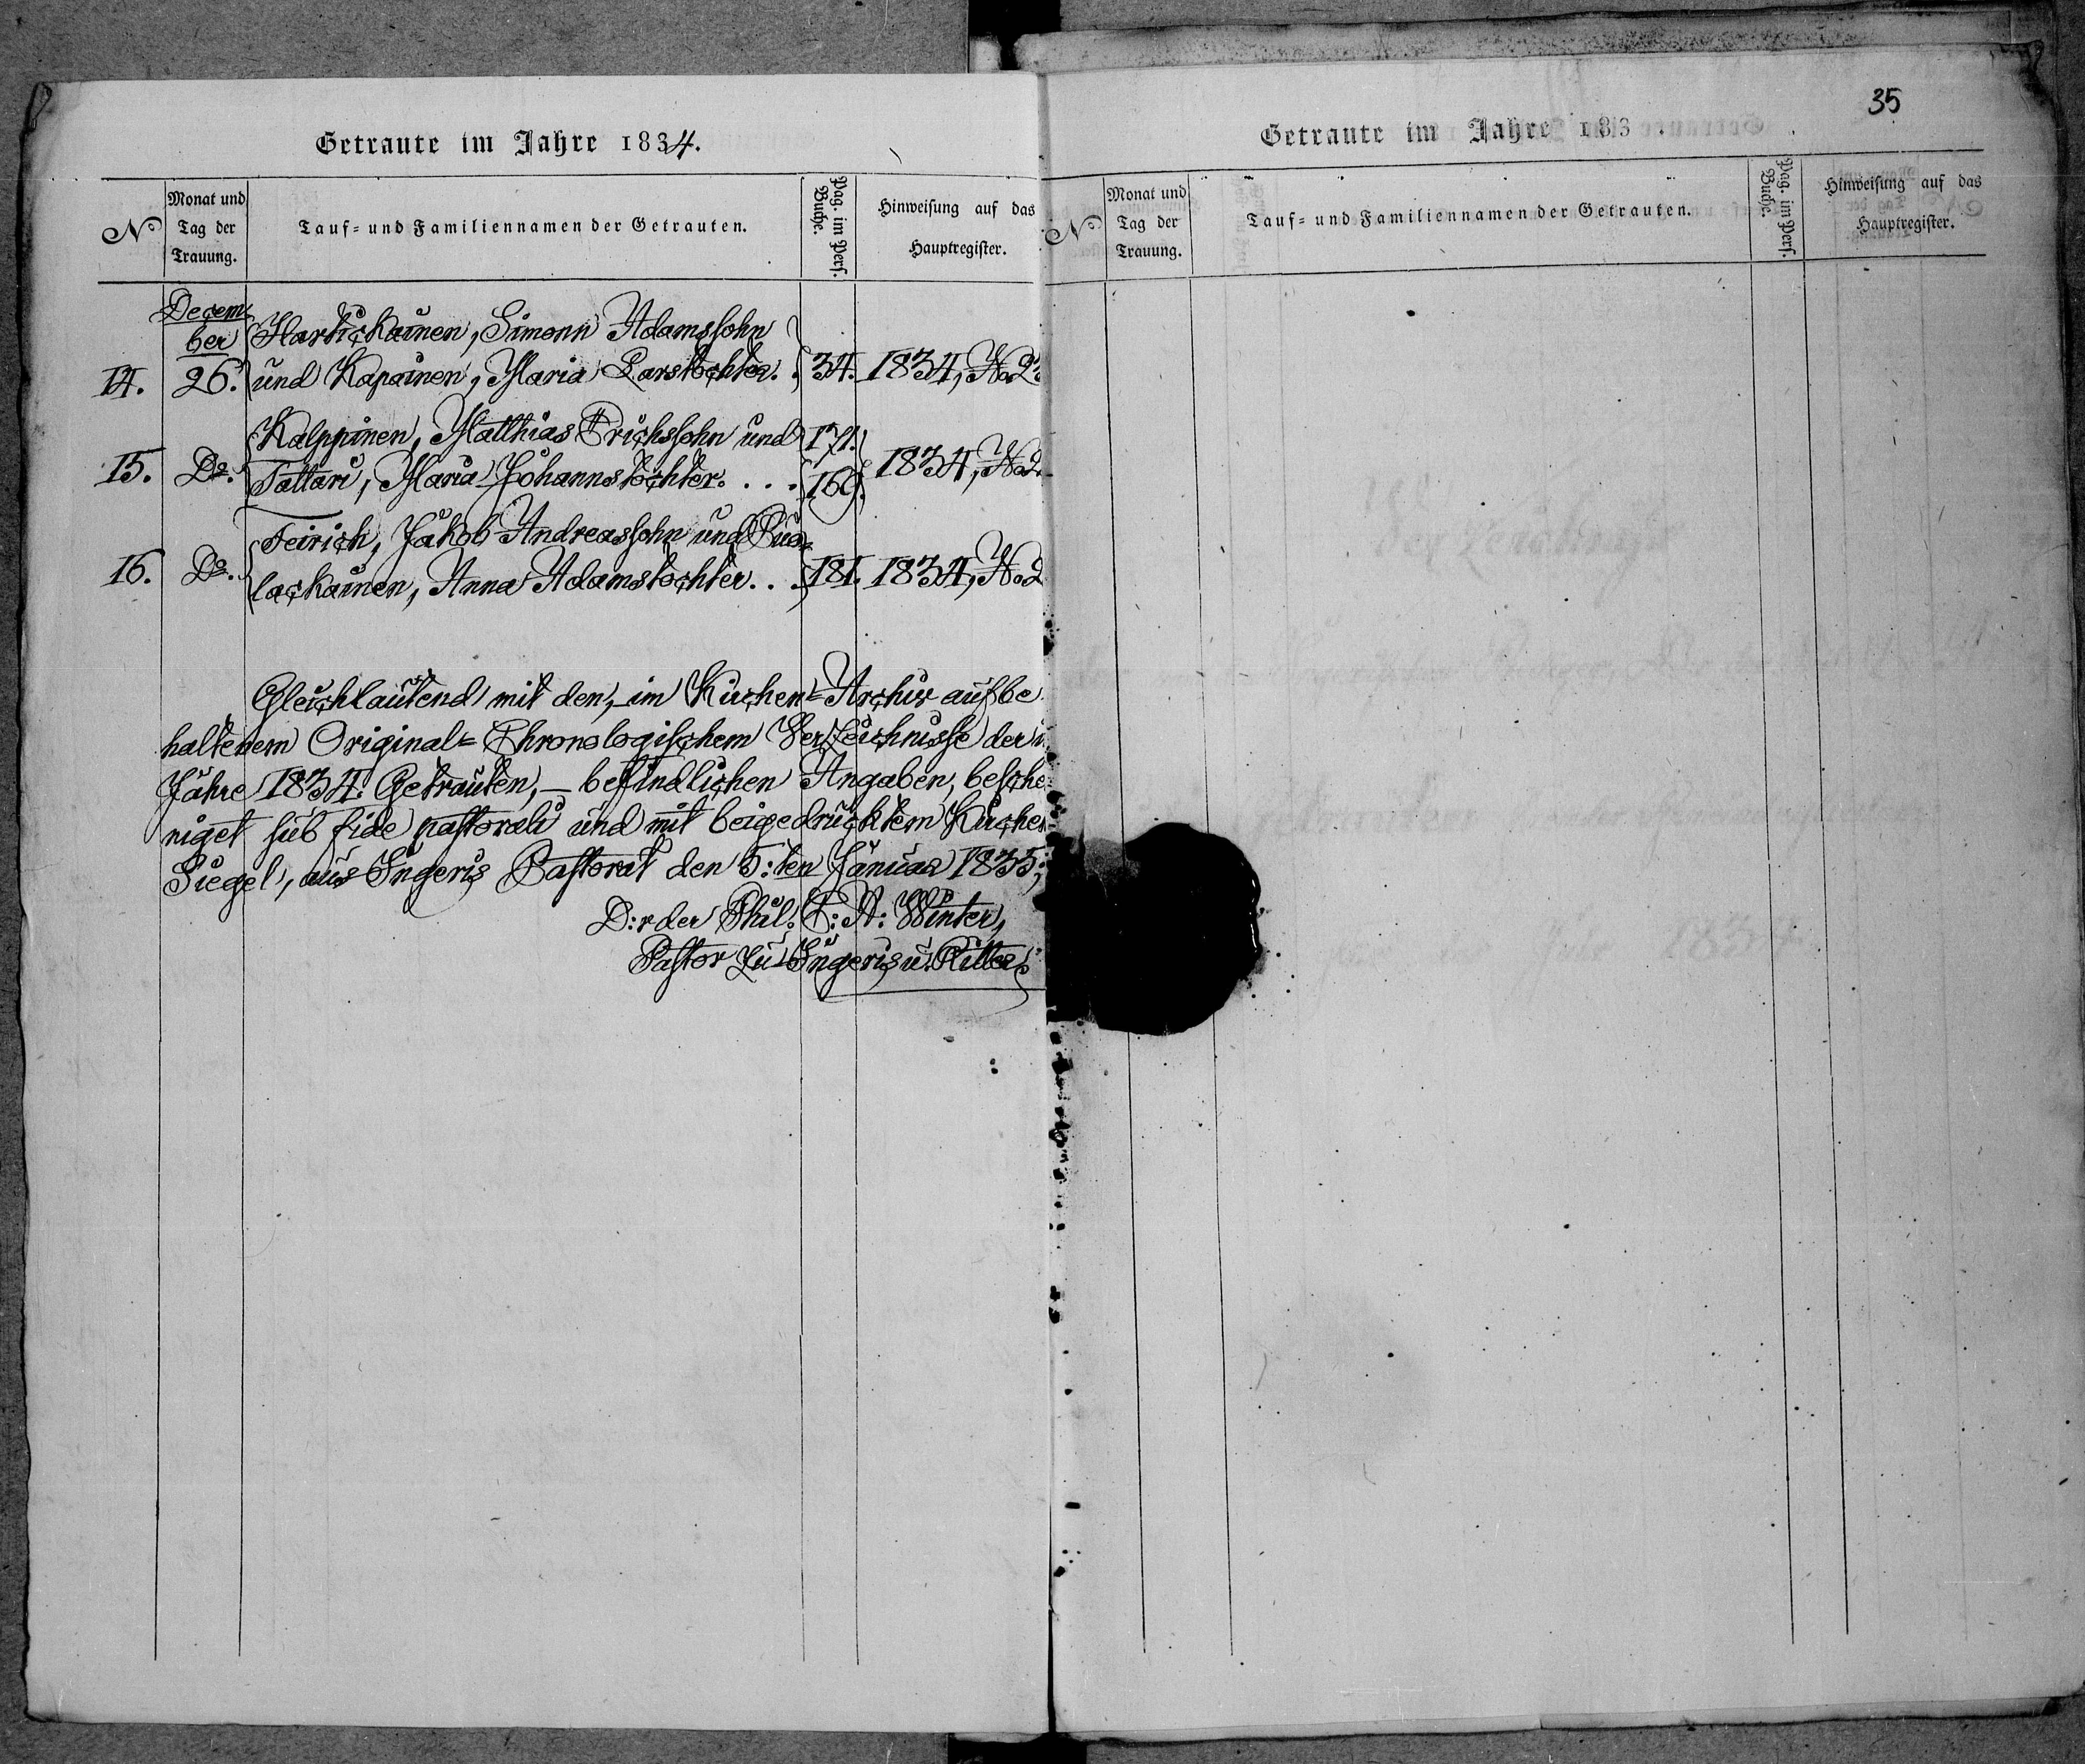 Getraute im Jahre 1834.
N° Monat und Tag der Trauung. Tauf- und Familiennamen der Getrauten. Pag. im Pers. Buche. Hinweisung auf das Hauptregister.
Decem-
ber Hartickainen, Simonn Adamssohn
14. 26. und Kapainen, Maria Larstochter. 34. 1834, No
Kalppinen, Matthias Erichssohn und 171.
15. Do. Tattari, Maria Johannstochter. . . . 169. 1834, No
Teirich, Jakob Andreassohn und Puo-
16. Do. lackainen, Anna Adamstochter. . . 181. 1834, No
Gleichlautend mit den, im Kirchen-Archiv aufbe
haltenem Original-Chronologischem Verzeichnisse der
Jahre 1834. Getrauten, — befindlichen Angaben, beschei
niget sub fide pastorali und mit beigedrucktem Kirchen
Siegel, aus Ingeris Pastorat den 5:ten Januar 1835;
D:r der Phil: A: Winter,
Pastor zu Ingeris u. Ritter.
35
Getraute im Jahre 183 .
N° Monat und Tag der Trauung. Tauf- und Familiennamen der Getrauten. Pag. im Pers. Buche. Hinweisung auf das Hauptregister.